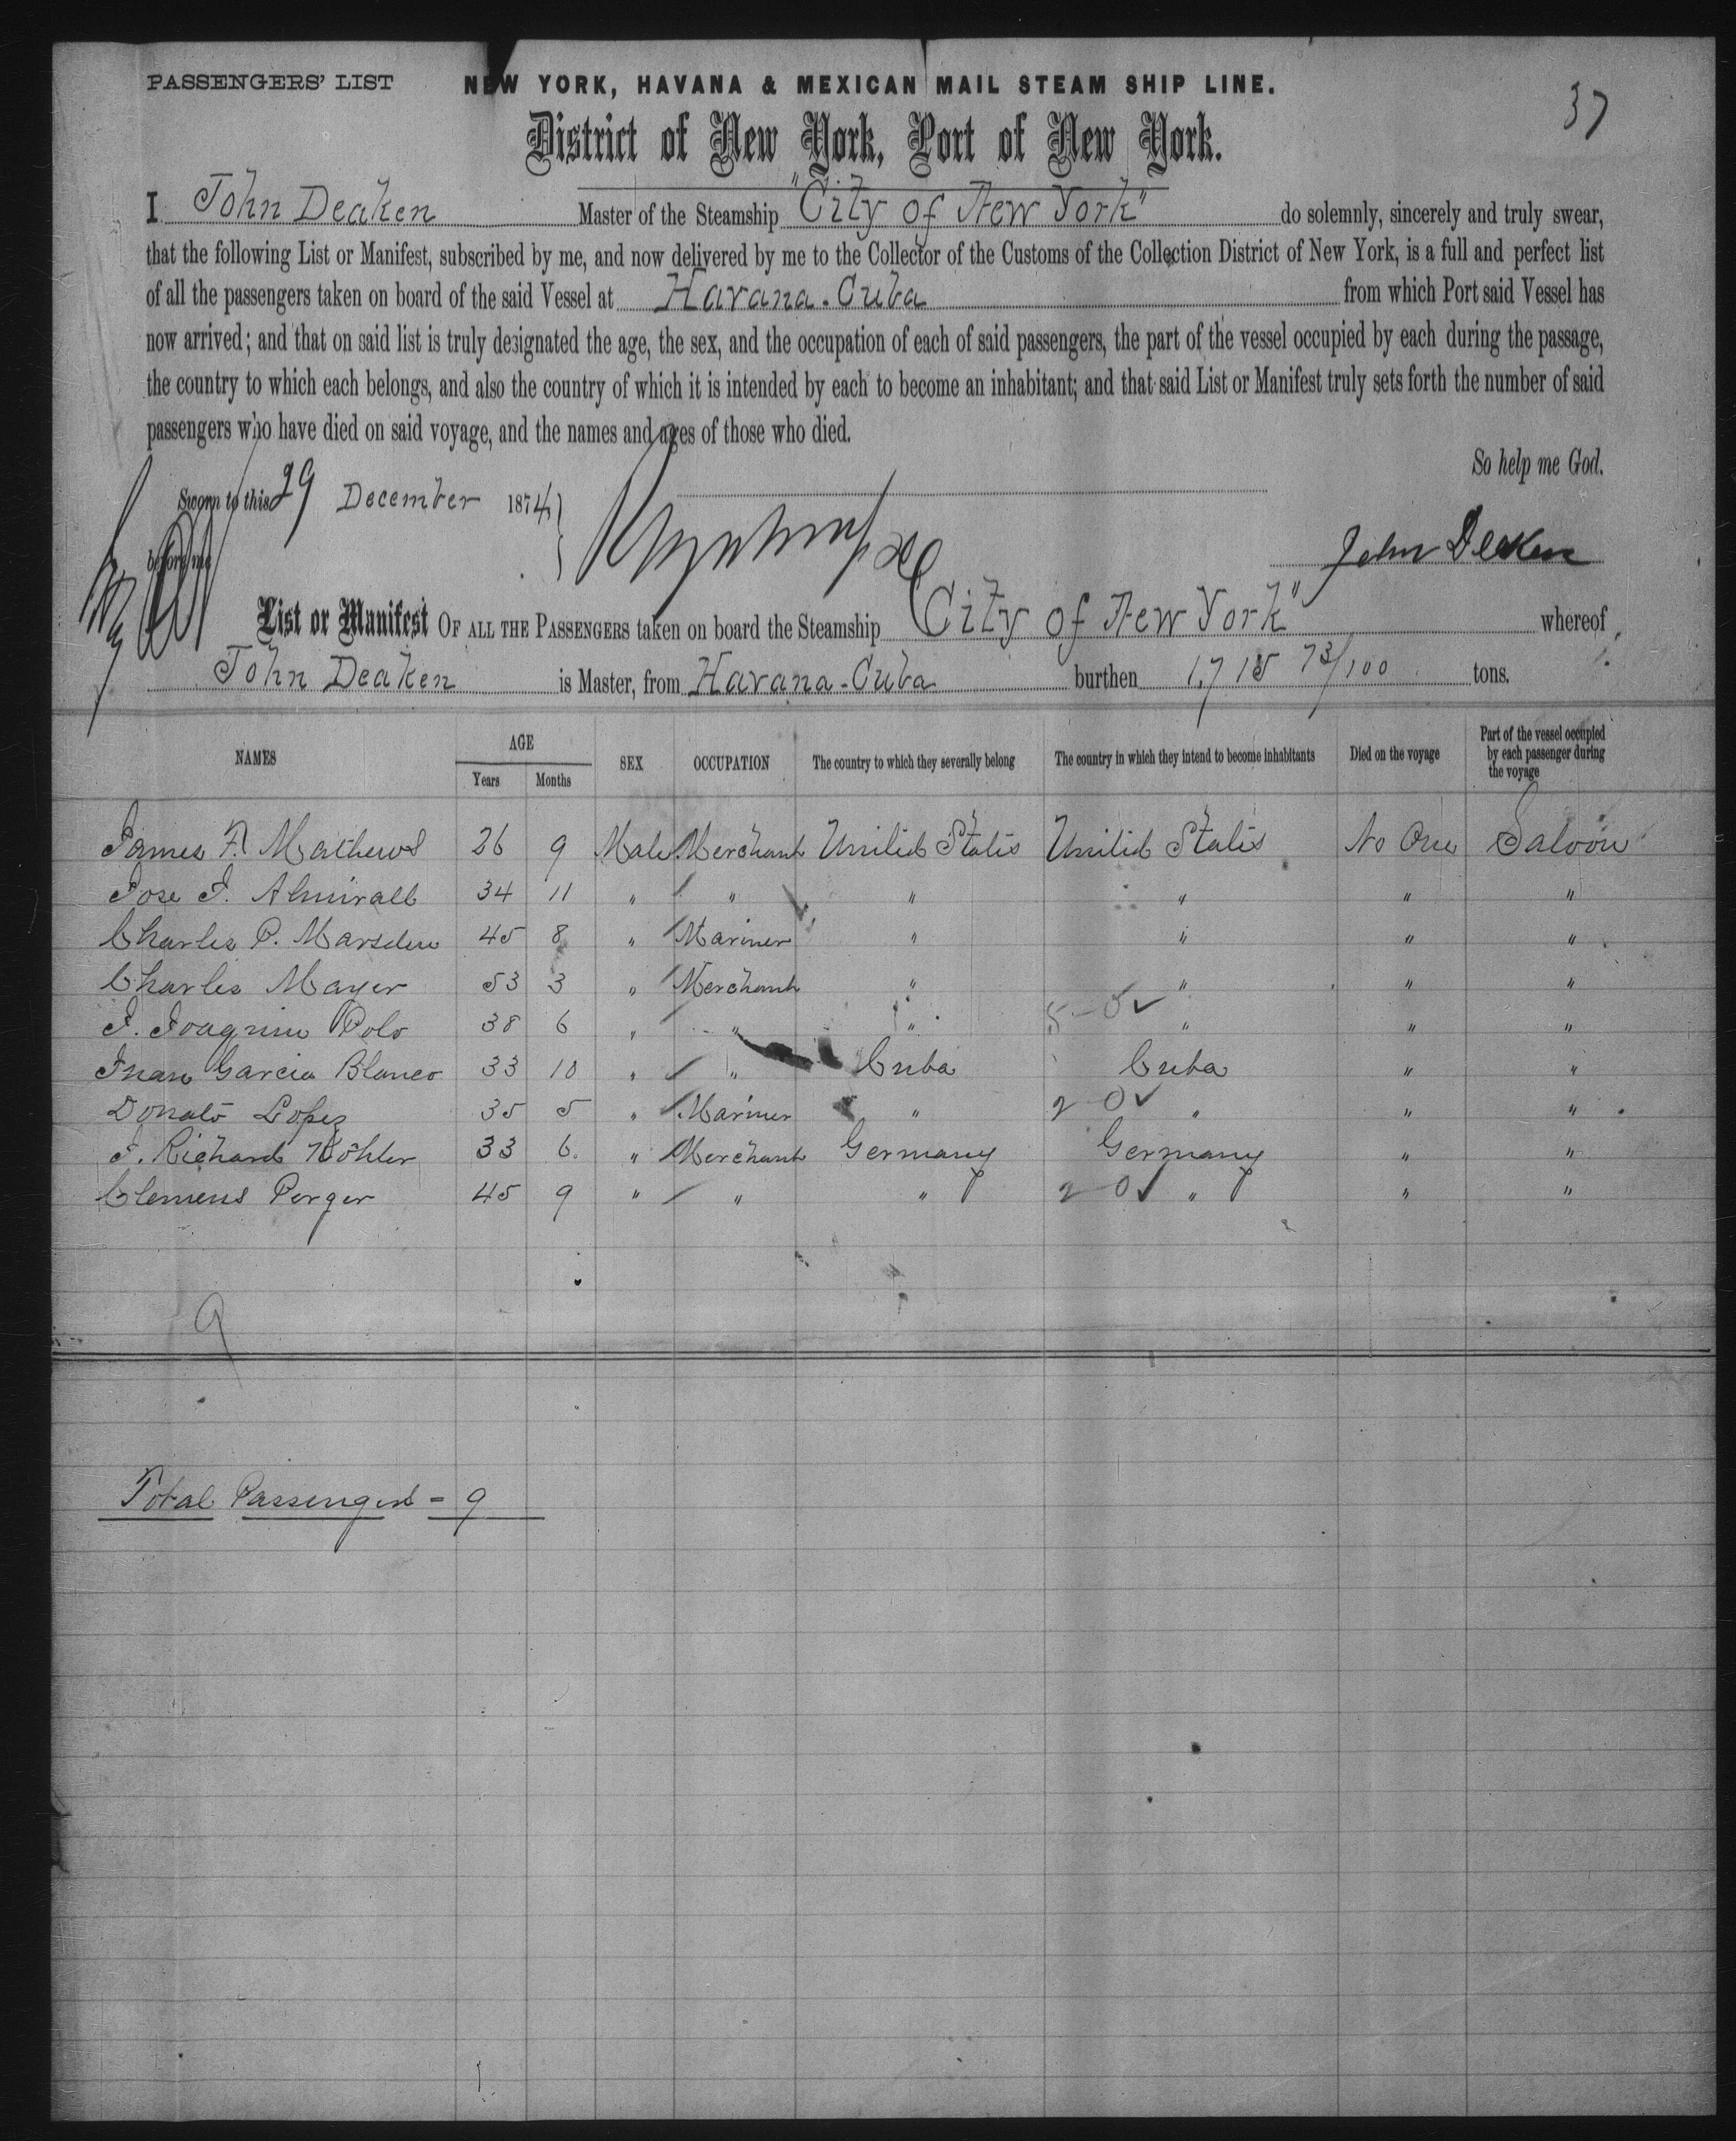 PASSENGERS' LIST NEW YORK, HAVANA & MEXICAN MAIL STEAM SHIP LINE. 37
District of New York, Port of New York.
I John Deaken Master of the Steamship "City of New York" do solemnly, sincerely and truly swear,
that the following List or Manifest, subscribed by me, and now delivered by me to the Collector of the Customs of the Collection District of New York, is a full and perfect list
of all the passengers taken on board of the said Vessel at Havana-Cuba from which Port said Vessel has
now arrived; and that on said list is truly designated the age, the sex, and the occupation of each of said passengers, the part of the vessel occupied by each during the passage,
the country to which each belongs, and also the country of which it is intended by each to become an inhabitant; and that said List or Manifest truly sets forth the number of said
passengers who have died on said voyage, and the names and ages of those who died.
So help me God.
Sworn to this 29 December 1874
before me
John Deaken
List or Manifest OF ALL THE PASSENGERS taken on board the Steamship "City of New York" whereof
John Deaken is Master, from Havana-Cuba burthen 1,715 73/100 tons.
NAMES AGE Years Months SEX OCCUPATION The country to which they severally belong The country in which they intend to become inhabitants Died on the voyage Part of the vessel occupied by each passenger during the voyage
James F. Mathews 26 9 Male Merchant United States United States No One Saloon
Jose J. Almirall 34 11 " " " " " "
Charles P. Marsden 45 8 " Mariner " " " "
Charles Mayer 53 3 " Merchant " " " "
J. Joaquin Polo 38 6 " " " 5-0✓ " " "
Juan Garcia Blanco 33 10 " " Cuba Cuba " "
Donato Lopez 35 5 " Mariner " 2-0✓ " " "
J. Richard Köhler 33 6 " Merchant Germany Germany " "
Clemens Perger 45 9 " " " 2-0✓ " " "
9
Total Passengers = 9